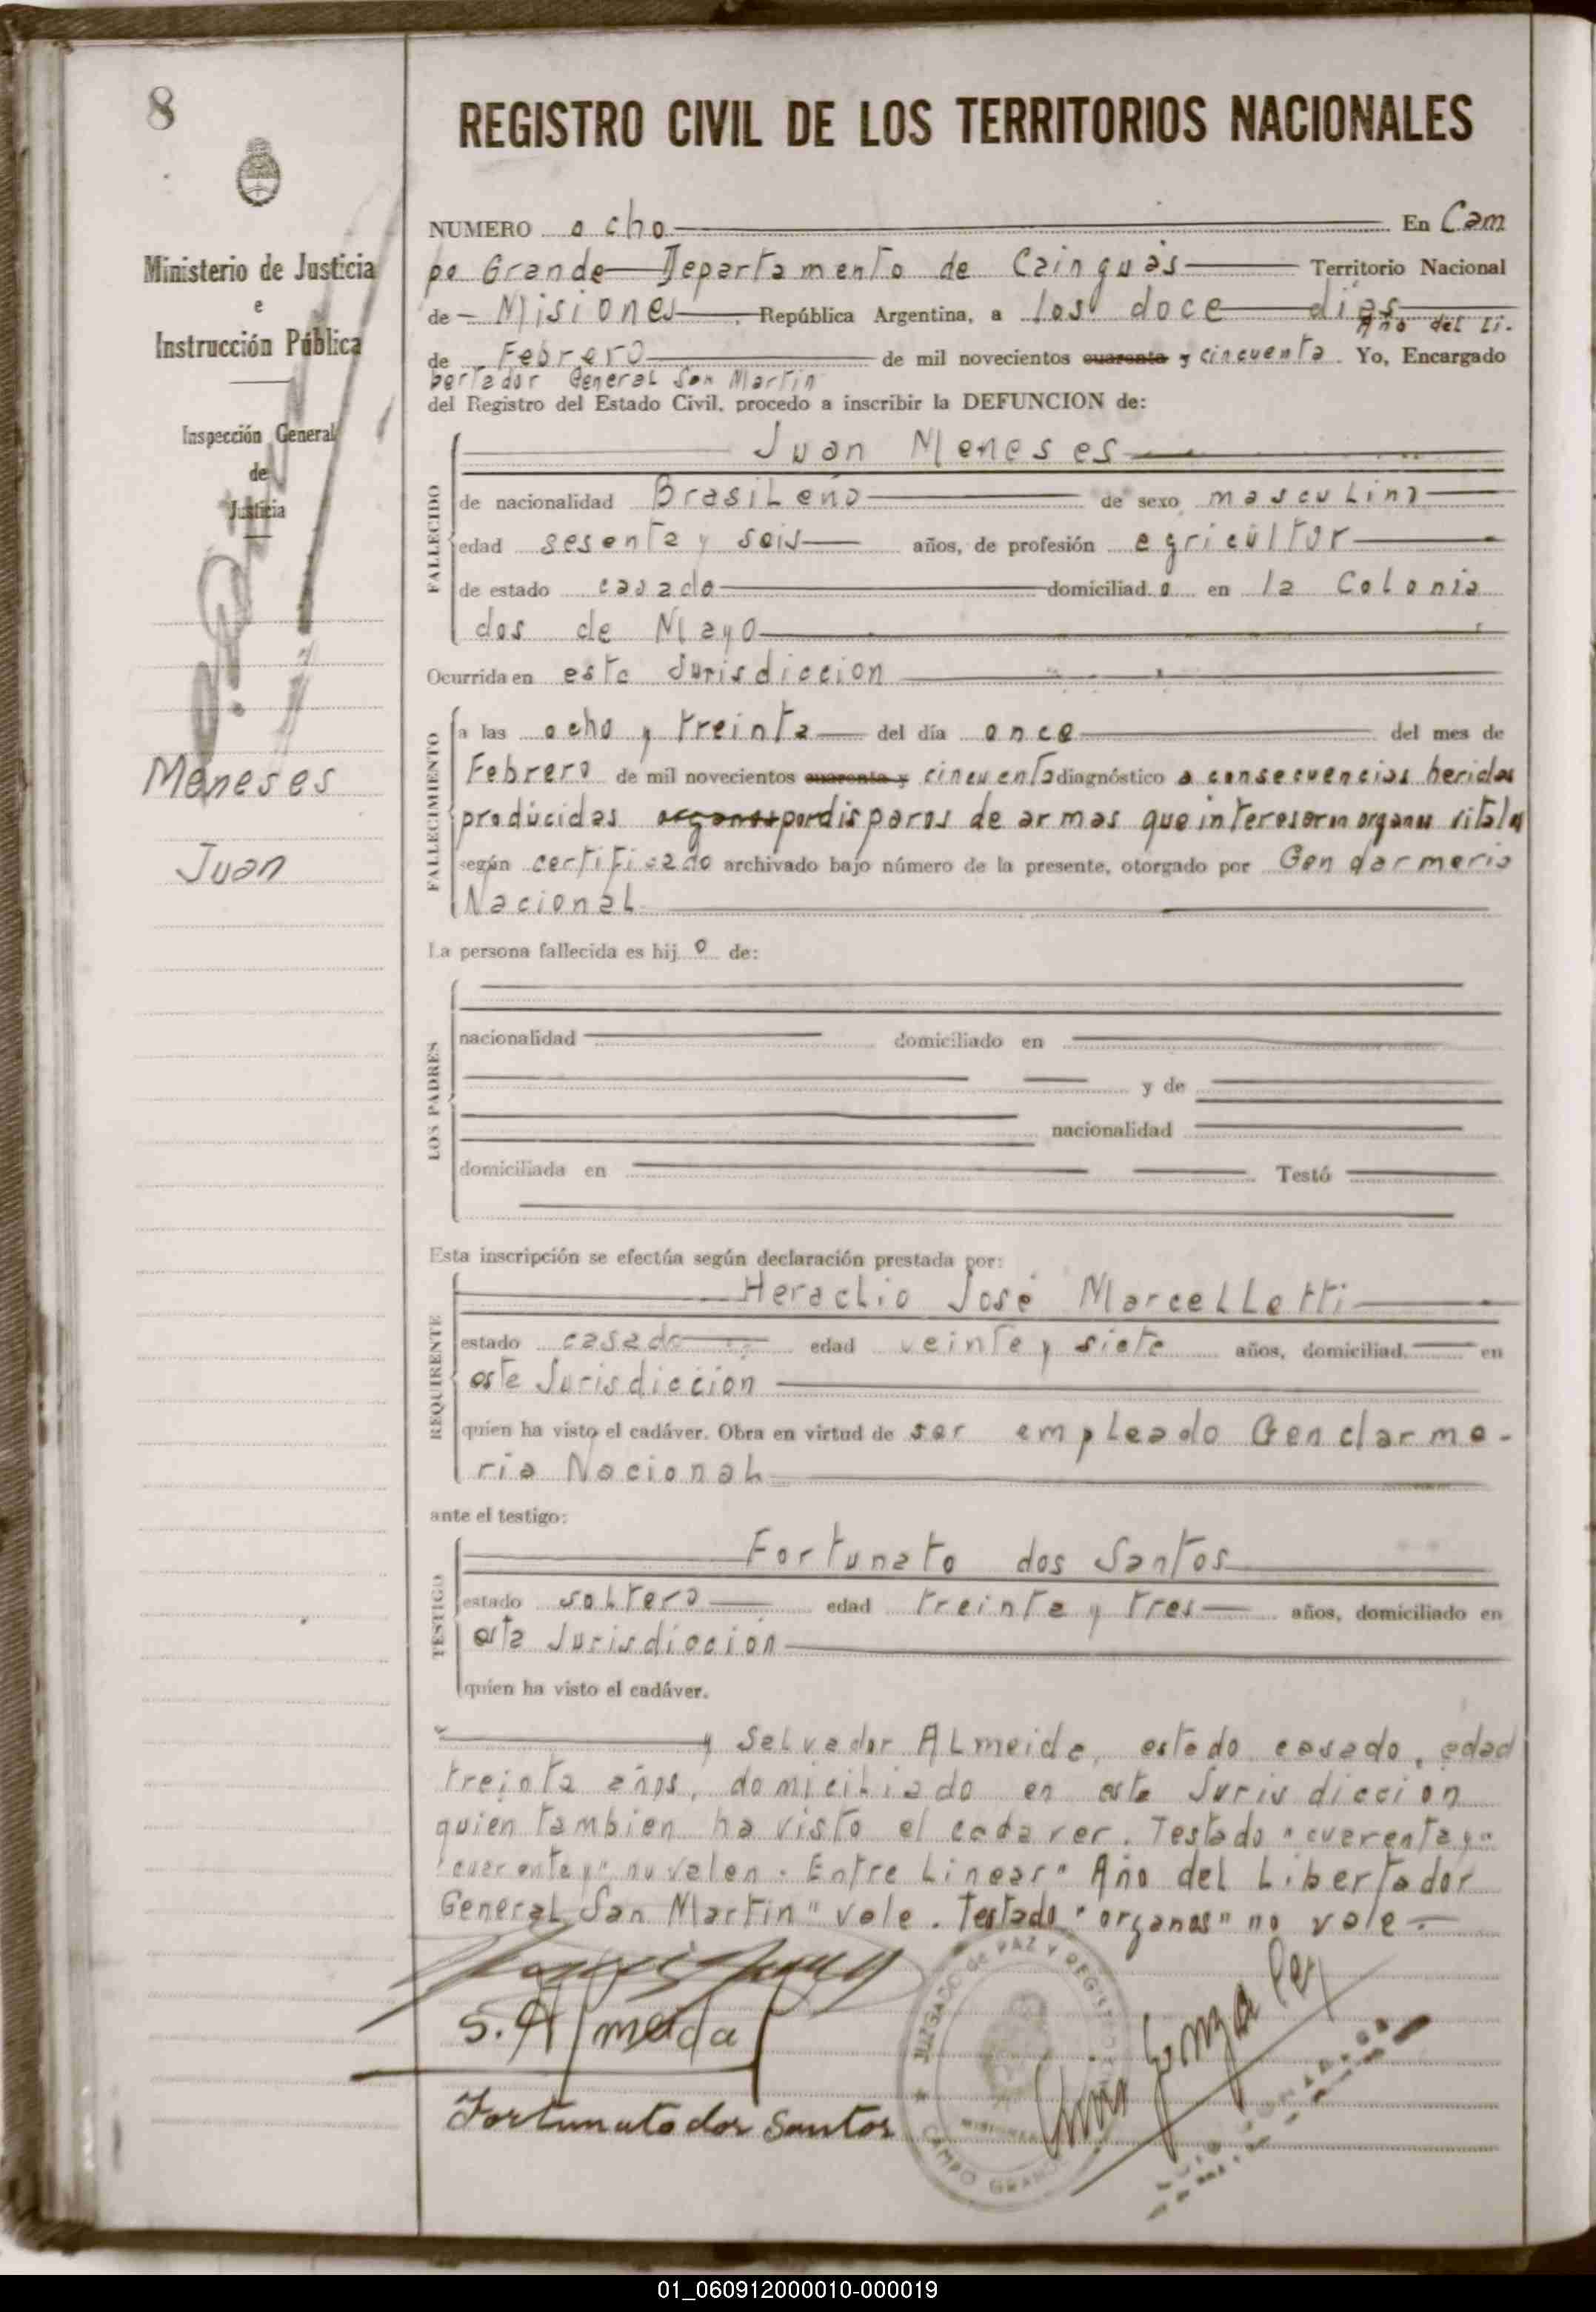 8
REGISTRO CIVIL DE LOS TERRITORIOS NACIONALES
Ministerio de Justicia
e
Instrucción Pública
Inspección General
de
Justicia
Meneses
Juan
NUMERO ocho En Cam
po Grande Departamento de Cainguás Territorio Nacional
de Misiones República Argentina, a los doce días
Año del Li-
de Febrero de mil novecientos cuarenta y cincuenta. Yo, Encargado
bertador General San Martín
del Registro del Estado Civil, procedo a inscribir la DEFUNCION de:
FALLECIDO
Juan Meneses
de nacionalidad Brasileño de sexo masculino
edad sesenta y seis años, de profesión agricultor
de estado casado domiciliado en la Colonia
dos de Mayo
Ocurrida en esta Jurisdiccion
FALLECIMIENTO
a las ocho y treinta del día once del mes de
Febrero de mil novecientos cuarenta y cincuenta diagnóstico a consecuencias heridas
producidas organos por disparos de armas que interesaron organos vitales
según certificado archivado bajo número de la presente, otorgado por Gendarmeria
Nacional
La persona fallecida es hijo de:
LOS PADRES
nacionalidad domiciliado en
y de
nacionalidad
domiciliada en Testó
Esta inscripción se efectúa según declaración prestada por:
REQUIRENTE
Heraclio José Marcelletti
estado casado edad veinte y siete años, domiciliad en
esta Jurisdicción
quien ha visto el cadáver. Obra en virtud de ser empleado Gendarme-
ria Nacional
ante el testigo:
TESTIGO
Fortunato dos Santos
estado soltero edad treinta y tres años, domiciliado en
esta Jurisdicción
quien ha visto el cadáver.
y Salvador Almeida, estado casado, edad
treinta años, domiciliado en esta Jurisdiccion
quien tambien ha visto el cadaver. Testado "cuarenta y"
"cuarenta y" no valen. Entre Lineas "Año del Libertador
General San Martín" vale. Testado "organos" no vale
S. Almeida
Fortunato dos Santos
JUZGADO de PAZ Y REGISTRO
CAMPO GRANDE
MISIONES
01_060912000010-000019